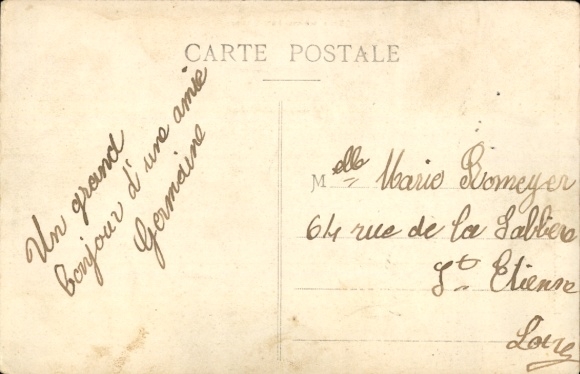 CARTE POSTALE
Un grand
bonjour d'une amie
Germaine
Melle Marie Romeyer
64 rue de la Sablière
St Etienne
Loire